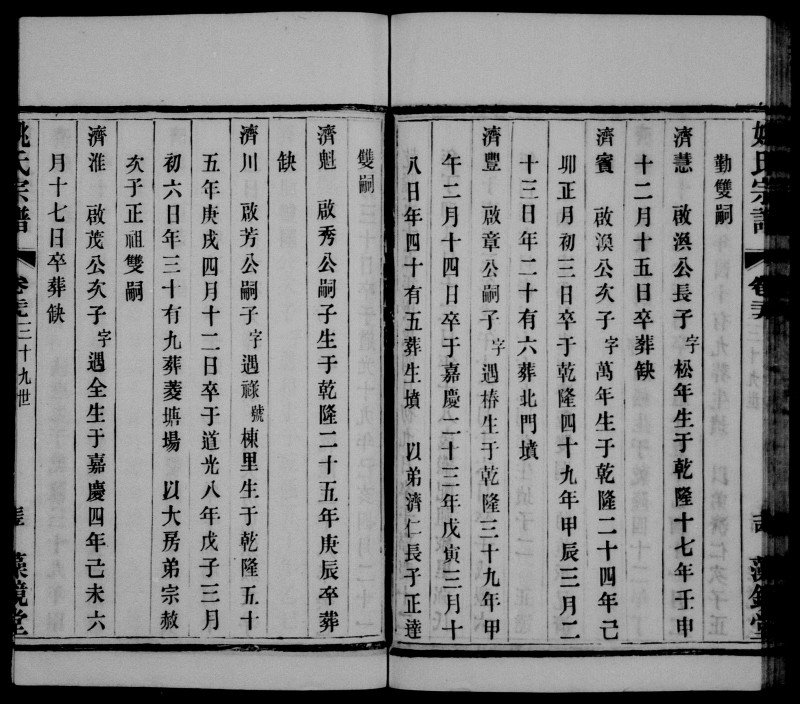 姚氏宗譜
卷
三十九世
勤雙嗣
濟慧 啟渙公長子字松年生于乾隆十七年壬申
十二月十五日卒葬缺
濟賓 啟渙公次子字萬年生于乾隆二十四年己
卯正月初三日卒于乾隆四十九年甲辰三月二
十三日年二十有六葬北門墳
濟豐 啟章公嗣子字遇椿生于乾隆三十九年甲
午二月十四日卒于嘉慶二十三年戊寅三月十
八日年四十有五葬生墳 以弟濟仁長子正達
雙嗣
濟魁 啟秀公嗣子生于乾隆二十五年庚辰卒葬
缺
濟川 啟芳公嗣子字遇祿號棟里生于乾隆五十
五年庚戌四月十二日卒于道光八年戊子三月
初六日年三十有九葬菱塘場 以大房弟宗赦
次子正祖雙嗣
濟淮 啟茂公次子字遇全生于嘉慶四年己未六
月十七日卒葬缺
姚氏宗譜
卷
三十九世
藻鏡堂